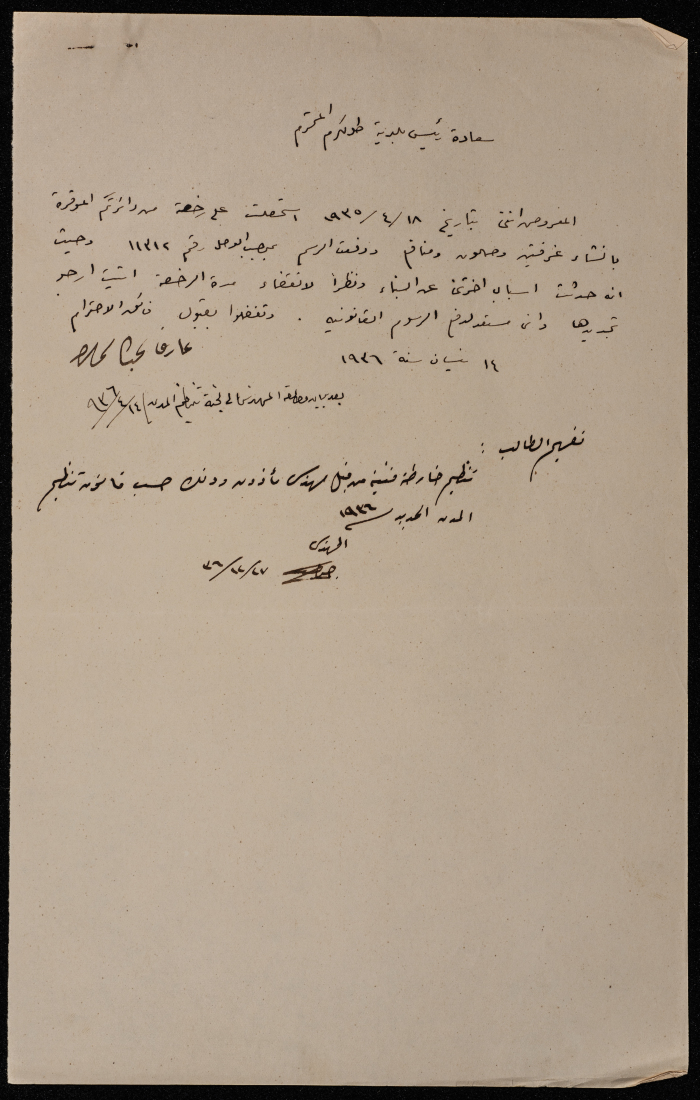 سعادة رئيس بلدية طولكرم المحترم
المعروض انني بتاريخ ١٨/٤/١٩٣٥ استحصلت على رخصة من دائرتكم الموقرة
بانشاء غرفتين وصالون ومنافع ودفعت الرسم بموجب الوصل رقم ١١٣١٢ وحيث
انه حدثت اسباب اخرتني عن البناء ونظراً لانقضاء مدة الرخصة اتيت ارجو
تجديدها واني مستعد لدفع الرسوم القانونية . وتفضلوا بقبول فائق الاحترام
١٤ نيسان سنة ١٩٣٦ عارف
بعد بيان مطالعة المهندس الى لجنة تنظيم المدن ١٤/٤/٩٣٦
تفهيم الطالب :
تنظيم خارطة فنية من قبل مهندس مأذون وذلك حسب قانون تنظيم
المدن الجديد ١٩٣٦
المهندس